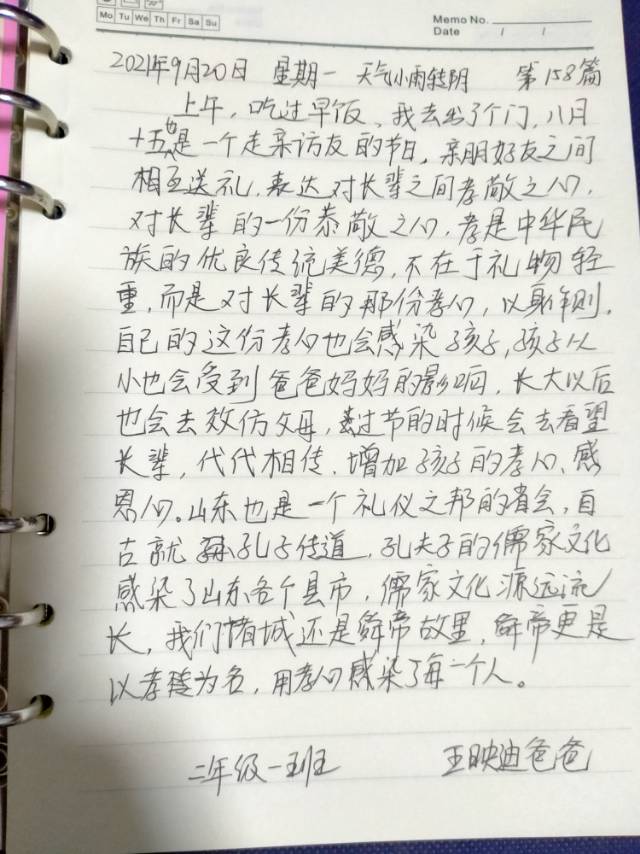 Mo Tu We Th Fr Sa Su
Memo No.
Date / /
2021年9月20日 星期一 天气小雨转阴 第158篇
上午,吃过早饭,我去出了个门,八月
十五也是一个走亲访友的节日,亲朋好友之间
相互送礼,表达对长辈之间孝敬之心,
对长辈的一份恭敬之心,孝是中华民
族的优良传统美德,不在于礼物轻
重,而是对长辈的那份孝心,以身作则,
自己的这份孝心也会感染孩子,孩子从
小也会受到爸爸妈妈的影响,长大以后
也会去效仿父母,过节的时候会去看望
长辈,代代相传,增加孩子的孝心、感
恩心。山东也是一个礼仪之邦的省会,自
古就孔子传道,孔夫子的儒家文化
感染了山东各个县市,儒家文化源远流
长,我们诸城还是舜帝故里,舜帝更是
以孝为名,用孝心感染了每一个人。
二年级一班 王映迪爸爸